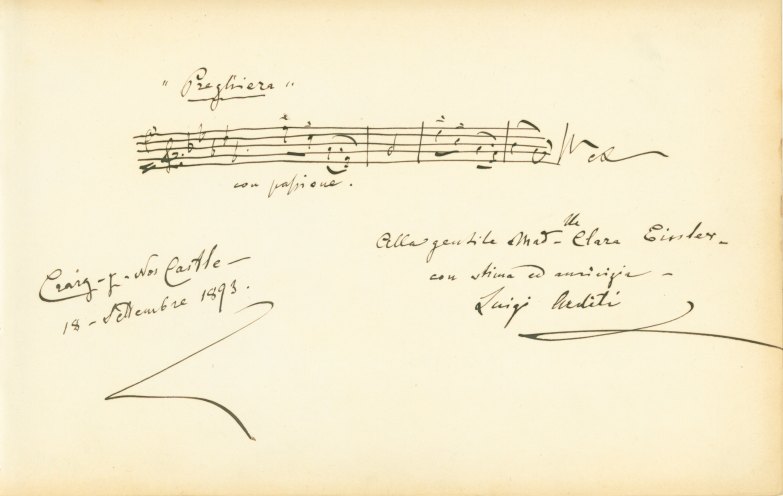 " Preghiera "
con passione.
Alla gentile Mad^lle Clara Eissler -
con stima ed amicizia -
Luigi Arditi
Craig-y-Nos Castle -
18 - Settembre 1893.